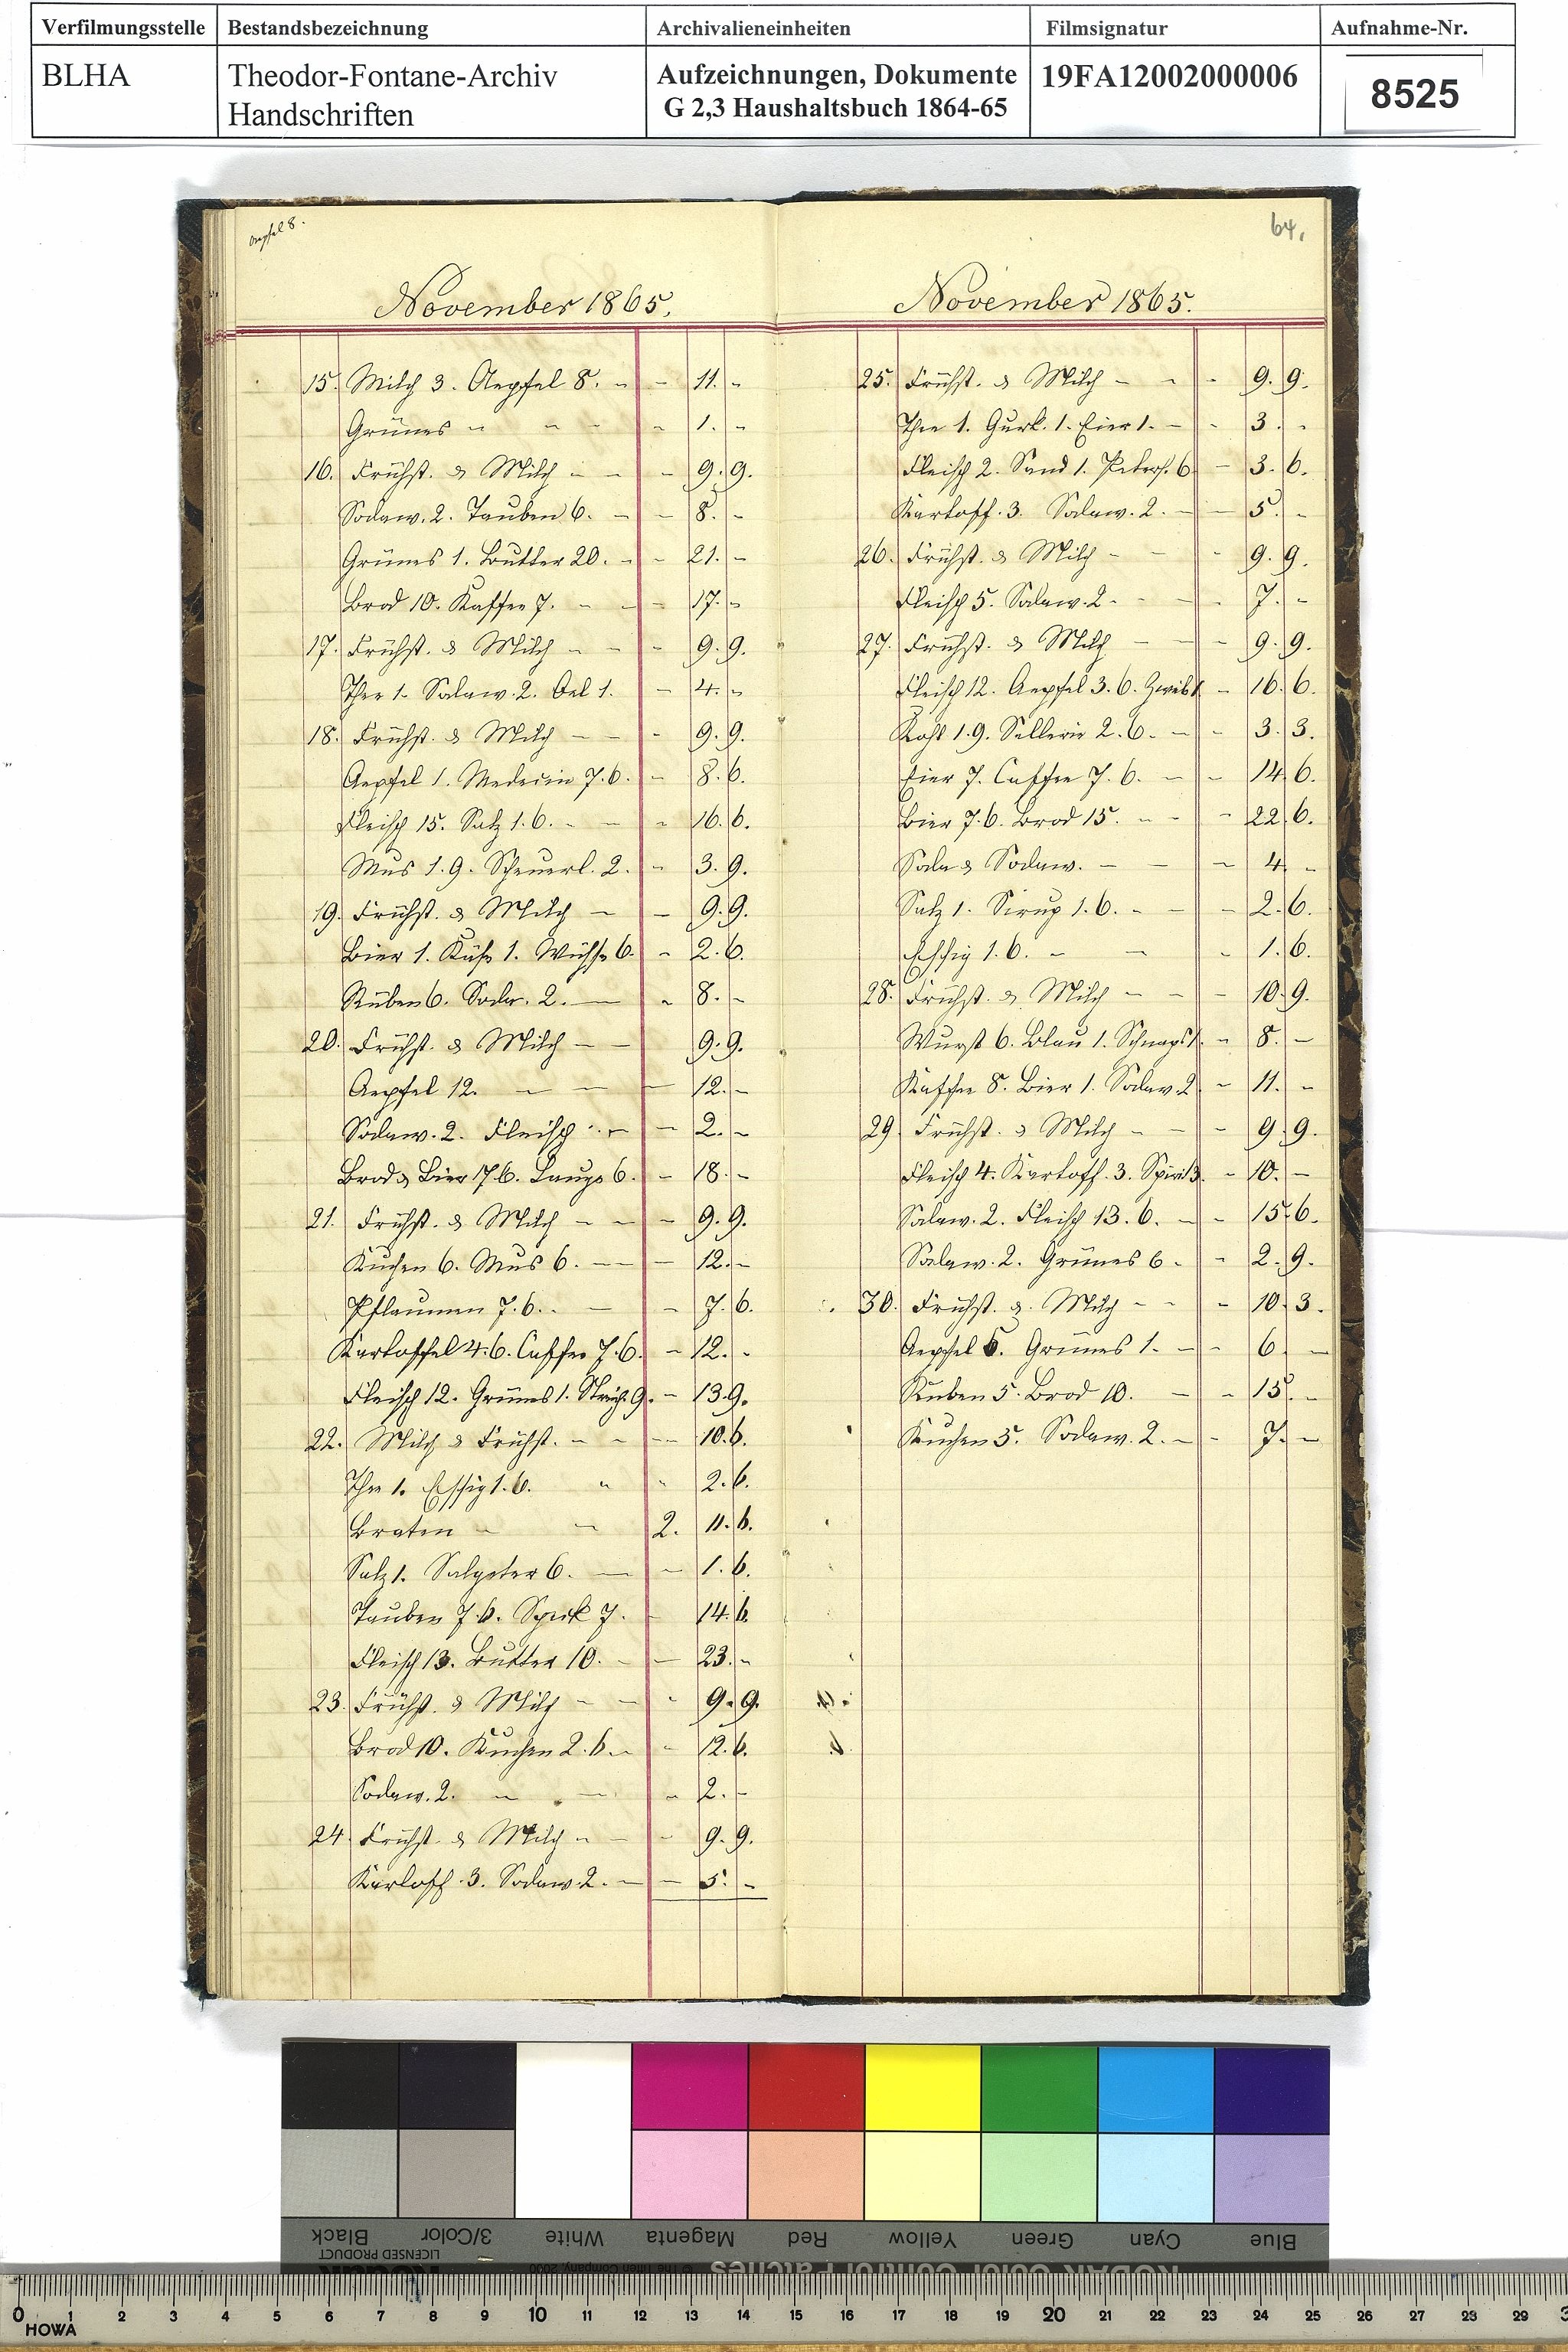 Verfilmungsstelle Bestandsbezeichnung Archivalieneinheiten Filmsignatur Aufnahme-Nr.
BLHA Theodor-Fontane-Archiv Handschriften Aufzeichnungen, Dokumente G 2,3 Haushaltsbuch 1864-65 19FA12002000006 8525
Aepfel 8.
November 1865.
15. Milch 3. Aepfel 8. - - 11. -
Grünes - - - - 1. -
16. Frühst. & Milch - - - 9. 9.
Sodaw. 2. Tauben 6. - - 8. -
Grünes 1. Butter 20. - - 21. -
Brod 10. Kaffee 7. - - - 17. -
17. Frühst. & Milch - - - 9. 9.
Thee 1. Sodaw. 2. Oel 1. - 4. -
18. Frühst. & Milch - - - 9. 9.
Aepfel 1. Medecin 7. 6. - 8. 6.
Fleisch 15. Salz 1. 6. - - - 16. 6.
Mus 1. 9. Scheuerl. 2. - 3. 9.
19. Frühst. & Milch - - 9. 9.
Bier 1. Käse 1. 6. - 2. 6.
Rüben 6. Sodw. 2. - - 8. -
20. Frühst. & Milch - - 9. 9.
Aepfel 12. - - - 12. -
Sodaw. 2. Fleisch - - - 2. -
Brod & Bier 17 6. 6. - 18. -
21. Frühst. & Milch - - - 9. 9.
Kuchen 6. Mus 6. - - - 12. -
Pflaumen 7. 6. - - - 7. 6.
Kartoffel 4. 6. Caffee 7. 6. - 12. -
Fleisch 12. Grünes 1. 9. - 13. 9.
22. Milch & Frühst. - - - 10. 6.
Thee 1. Essig 1. 6. - - 2. 6.
Braten - - 2. 11. 6.
Salz 1. Salpeter 6. - - 1. 6.
Tauben 7. 6. Speck 7. - 14. 6.
Fleisch 13. Butter 10. - - 23. -
23. Frühst. & Milch - - - 9. 9.
Brod 10. Kuchen 2. 6. - - 12. 6.
Sodaw. 2. - - - 2. -
24. Frühst. & Milch - - - 9. 9.
Kartoff. 3. Sodaw. 2. - - 5. -
64.
November 1865.
25. Frühst. & Milch - - - 9. 9.
Thee 1. Gurk. 1. Eier 1. - - 3. -
Fleisch 2. Sand 1. Peters. 6 - 3. 6.
Kartoff. 3. Sodaw. 2. - - 5. -
26. Frühst. & Milch - - - 9. 9.
Fleisch 5. Sodaw. 2. - - - 7. -
27. Frühst. & Milch - - - 9. 9.
Fleisch 12. Aepfel 3. 6. Zwieb 1 - 16. 6.
Kohl 1. 9. Sellerie 2. 6. - - 3. 3.
Eier 7. Caffee 7. 6. - - 14. 6.
Bier 7. 6. Brod 15. - - - 22. 6.
Soda & Sodaw. - - - 4. -
Salz 1. Sirup 1. 6. - - - 2. 6.
Essig 1. 6. - - - 1. 6.
28. Frühst. & Milch - - - 10. 9.
Wurst 6. Blau 1. Schnaps 1. - 8. -
Kaffee 8. Bier 1. Sodaw. 2 - 11. -
29. Frühst. & Milch - - - 9. 9.
Fleisch 4. Kartoff. 3. Spirit 3. - 10. -
Sodaw. 2. Fleisch 13. 6. - - 15. 6.
Sodaw. 2. Grünes 6 - - 2. 9.
30. Frühst. & Milch - - - 10. 3.
Aepfel 5. Grünes 1. - - 6. -
Rüben 5. Brod 10. - - 15. -
Kuchen 5. Sodaw. 2. - - 7. -
Black 3/Color White Magenta Red Yellow Green Cyan Blue
LICENSED PRODUCT
Kodak © The Tiffen Company, 2000 KODAK Color Control Patches
0 1 2 3 4 5 6 7 8 9 10 11 12 13 14 15 16 17 18 19 20 21 22 23 24 25 26 27 28 29 3
HOWA